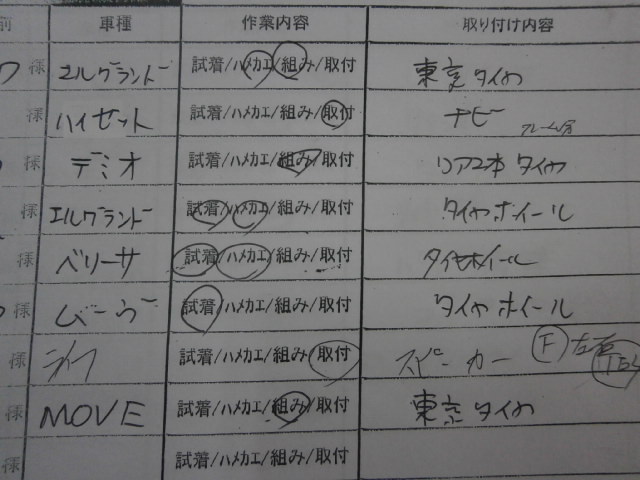 前 車種 作業内容 取り付け内容
様 エルグランド 試着/ハメカエ/組み/取付 東京タイヤ
様 ハイゼット 試着/ハメカエ/組み/取付 ナビ
様 デミオ 試着/ハメカエ/組み/取付 リア2本 タイヤ
様 エルグランド 試着/ハメカエ/組み/取付 タイヤホイール
様 ベリーサ 試着/ハメカエ/組み/取付 タイヤホイール
様 ムーヴ 試着/ハメカエ/組み/取付 タイヤホイール
様 ライフ 試着/ハメカエ/組み/取付 スピーカー F 左右
様 MOVE 試着/ハメカエ/組み/取付 東京タイヤ
様 試着/ハメカエ/組み/取付